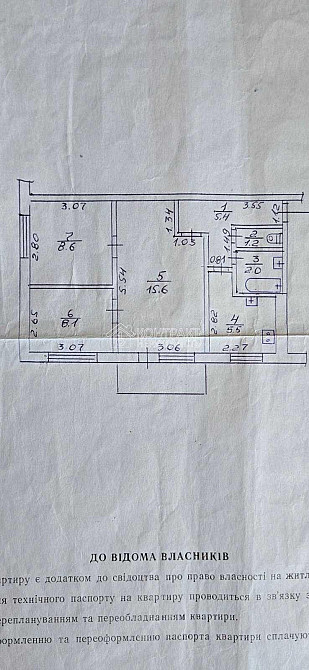 3.07
1.34
1
5.4
3.55
1.12
7
8.6
2.80
1.03
1.49
2
1.2
5.54
5
15.6
081
3
2.0
6
8.1
2.65
КОНТРАКТ
2.82
4
5.5
3.07
3.06
2.27
ДО ВІДОМА ВЛАСНИКІВ
артиру є додатком до свідоцтва про право власності на житл
ня технічного паспорту на квартиру проводиться в зв'язку з
переплануванням та переобладнанням квартири.
формленню та переоформленню паспорта квартири сплачуют